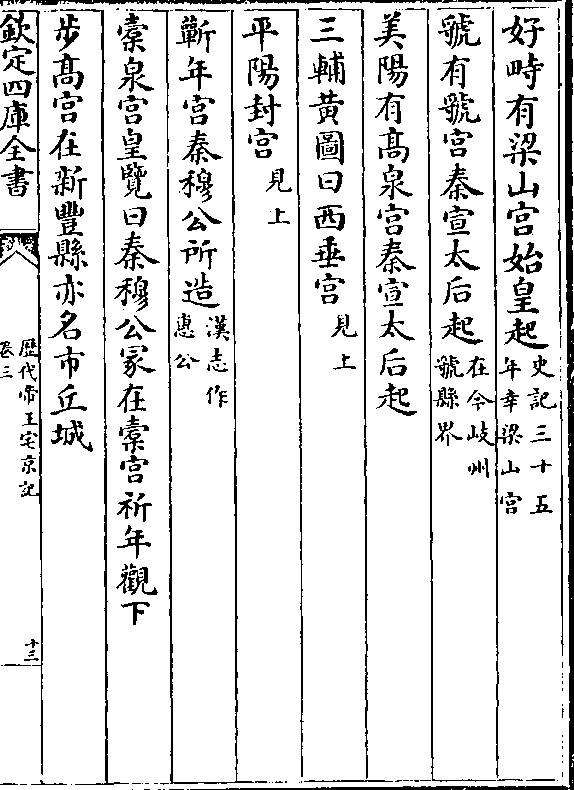 好畤有梁山宮始皇起史記三十五年幸梁山宮
虢有虢宮秦宣太后起在今岐州虢縣界
美陽有高泉宮秦宣太后起
三輔黃圖曰西垂宮見上
平陽封宮見上
蘄年宮秦穆公所造漢志作惠公
橐泉宮皇覽曰秦穆公冢在橐宮祈年觀下
步高宮在新豐縣亦名市丘城
欽定四庫全書
歷代帝王宅京記
卷三
十三